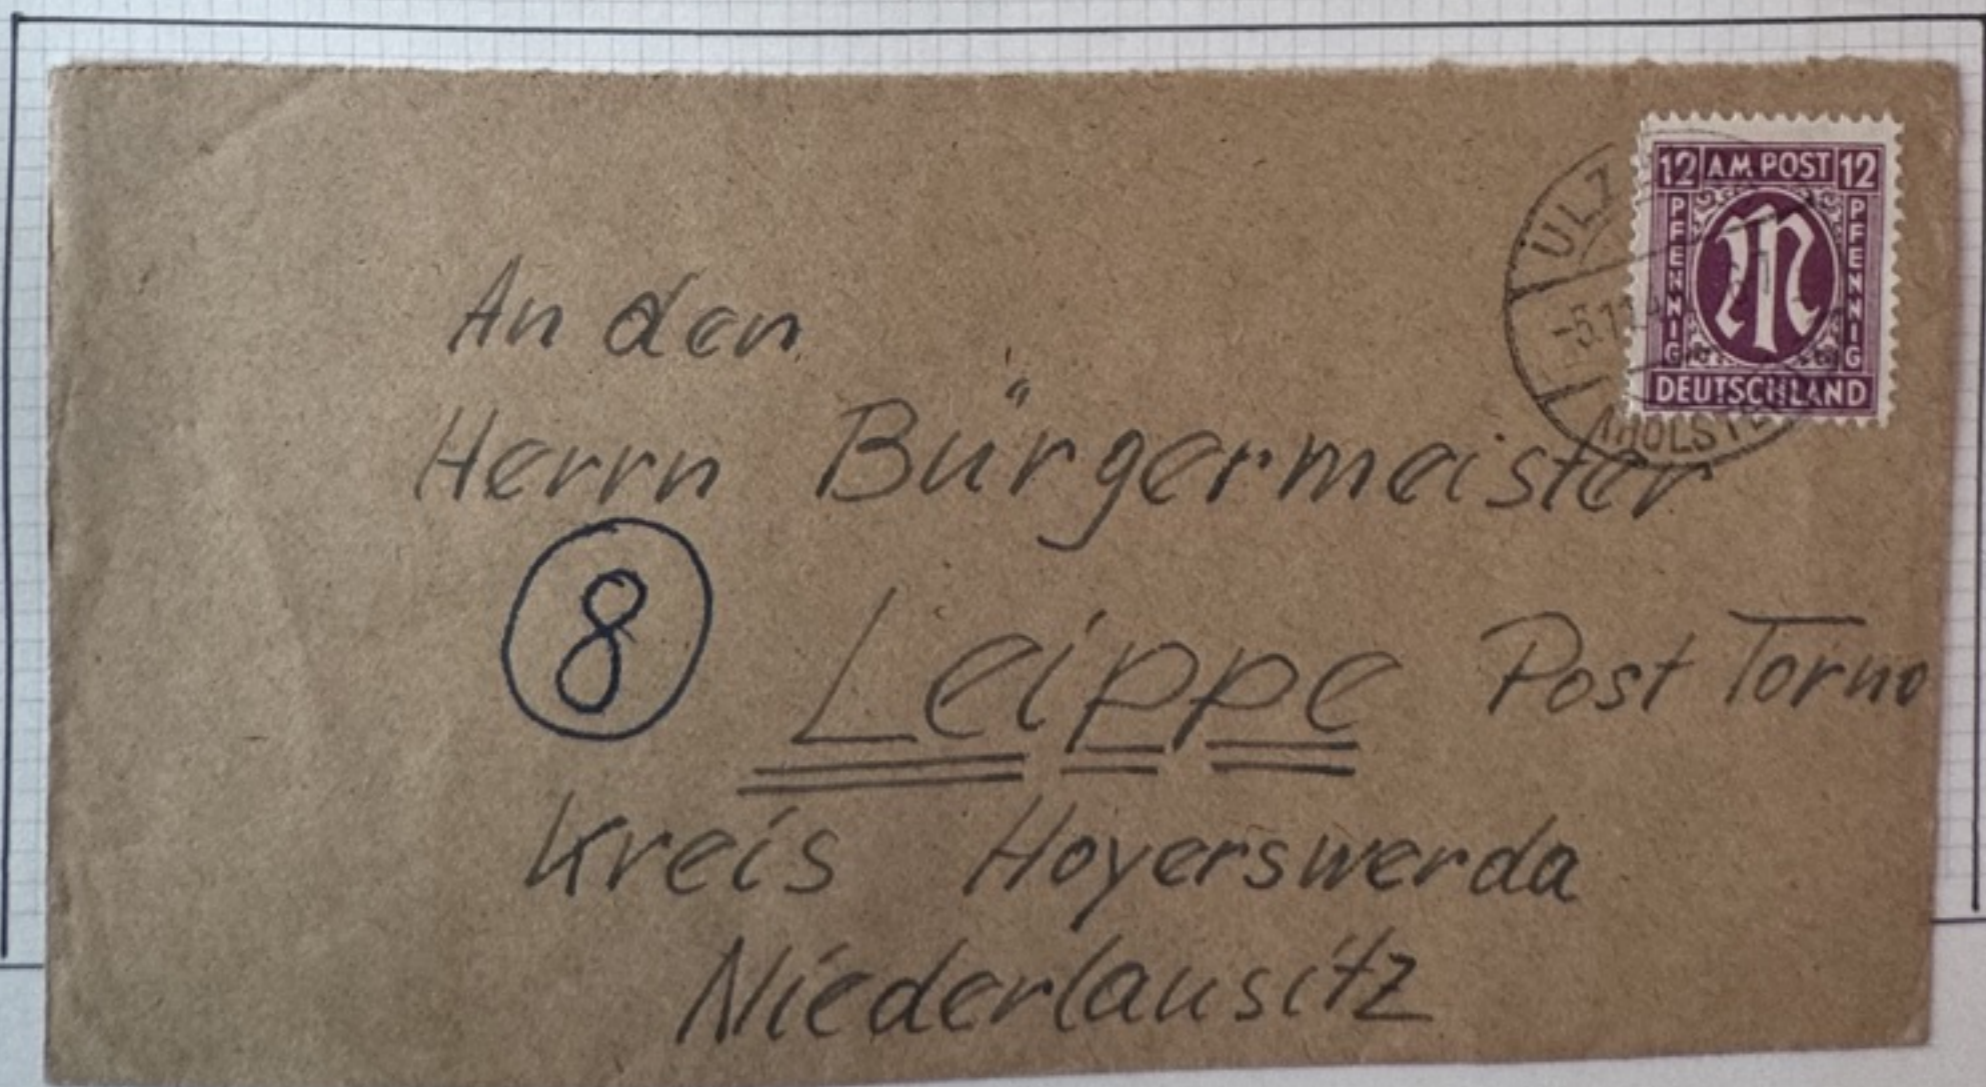 12 AM POST 12
PFENNIG
PFENNIG
DEUTSCHLAND
ULZ
An den
Herrn Bürgermeister
8 Leippe Post Torno
Kreis Hoyerswerda
Niederlausitz